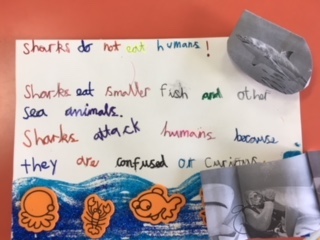 Sharks do not eat humans!
Sharks eat smaller fish and other
sea animals.
Sharks attack humans because
they are confused or curious